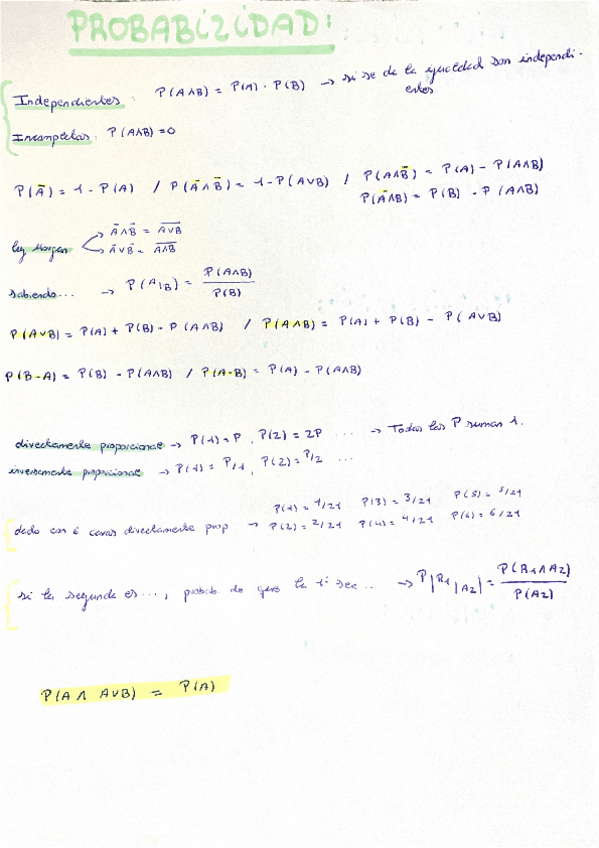 PROBABILIDAD:
Independientes: P(A∧B) = P(A) · P(B) → si se da la igualdad son independi-
entes
Incompatibles: P(A∧B)=0
P(Ā) = 1 - P(A) / P(Ā∧B̄) = 1-P(A∪B) / P(A∧B̄) = P(A) - P(A∧B)
P(Ā∧B) = P(B) - P(A∧B)
ley Morgan Ā∧B̄ = \overline{A∪B}
Ā∪B̄ = \overline{A∧B}
sabiendo... → P(A|B) = P(A∧B) / P(B)
P(A∪B) = P(A) + P(B) - P(A∧B) / P(A∧B) = P(A) + P(B) - P(A∪B)
P(B-A) = P(B) - P(A∧B) / P(A-B) = P(A) - P(A∧B)
directamente proporcional → P(1) = P, P(2) = 2P ... → Todas las P suman 1.
inversamente proporcional → P(1) = P/1, P(2) = P/2 ...
P(1) = 1/21 P(3) = 3/21 P(5) = 5/21
dado con 6 caras directamente prop → P(2) = 2/21 P(4) = 4/21 P(6) = 6/21
si la segunda es..., probab. de que la 1ª sea .. → P|R1|A2| = P(R1∧A2) / P(A2)
P(A∧ A∪B) = P(A)